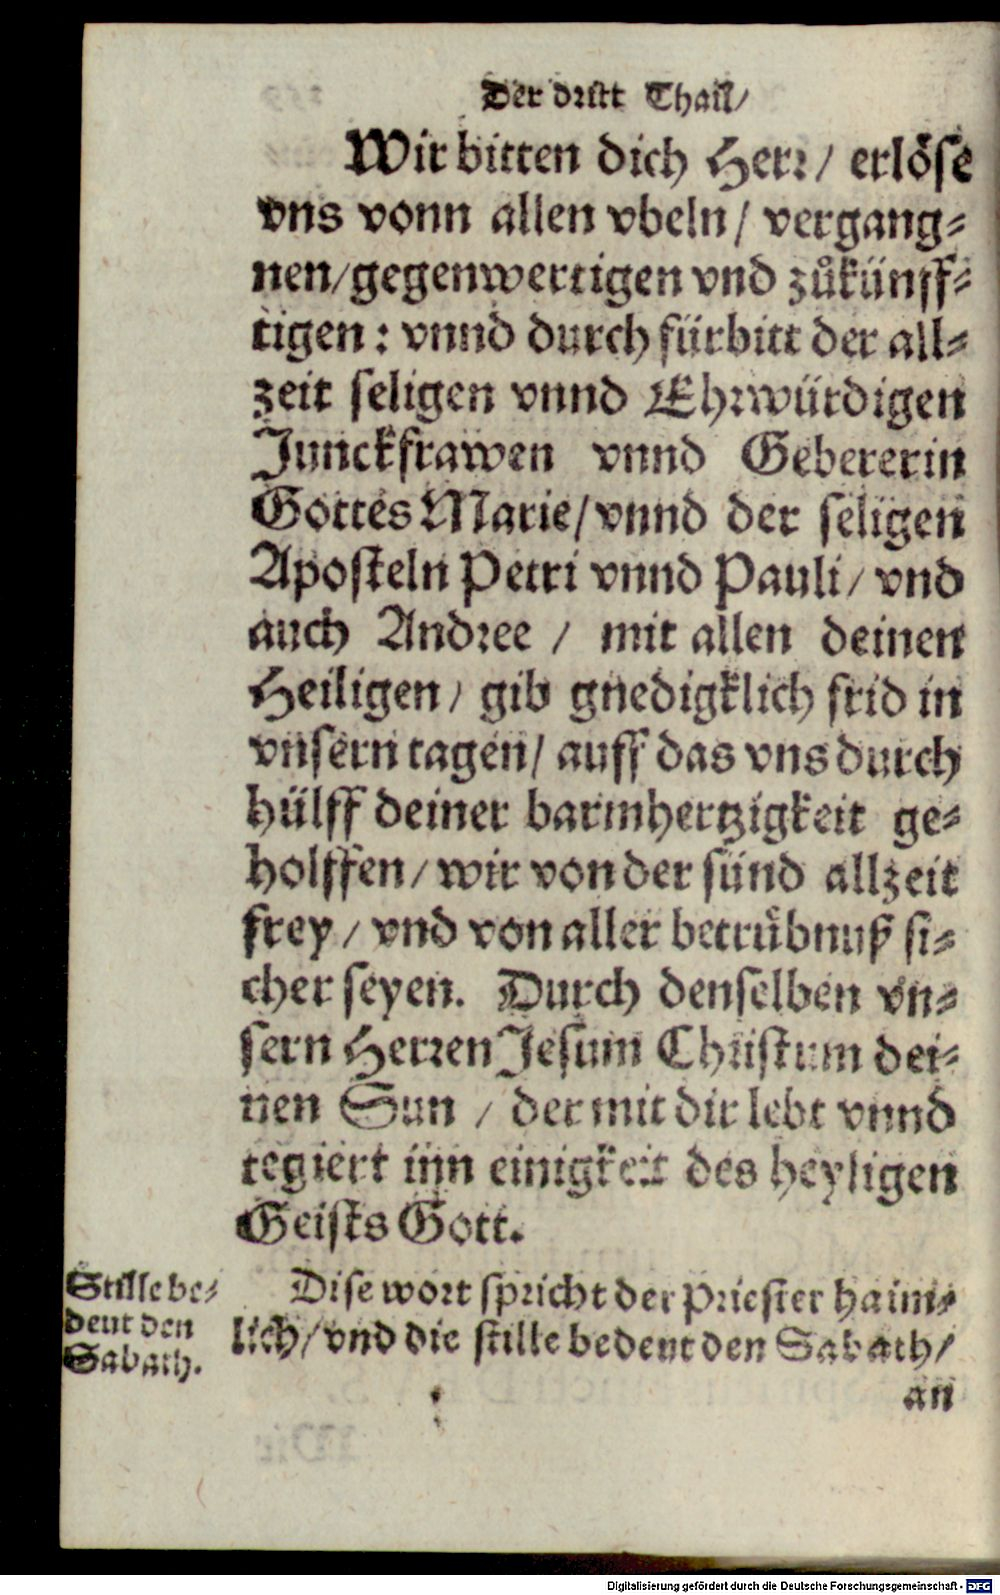 Der dritt Thail/
Wir bitten dich Herr/ erlöse
vns vonn allen vbeln/ vergang⸗
nen/gegenwertigen vnd zůkünff⸗
tigen: vnnd durch fürbitt der all⸗
zeit seligen vnnd Ehrwürdigen
Junckfrawen vnnd Gebererin
Gottes Marie/vnnd der seligen
Aposteln Petri vnnd Pauli/ vnd
auch Andree / mit allen deinen
Heiligen/ gib gnedigklich frid in
vnsern tagen/ auff das vns durch
hülff deiner barmhertzigkeit ge⸗
holffen/ wir von der sünd allzeit
frey/ vnd von aller betrůbnuß si⸗
cher seyen. Durch denselben vn⸗
sern Herren Jesum Christum dei⸗
nen Sun / der mit dir lebt vnnd
regiert inn einigkeit des heyligen
Geists Gott.
Stille be⸗
deut den
Sabath.
Dise wort spricht der Priester haim⸗
lich/ vnd die stille bedeut den Sabath/
an
Digitalisierung gefördert durch die Deutsche Forschungsgemeinschaft - DFG